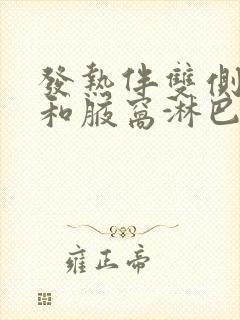 發熱伴雙側
和腋窩淋巴
雍正帝